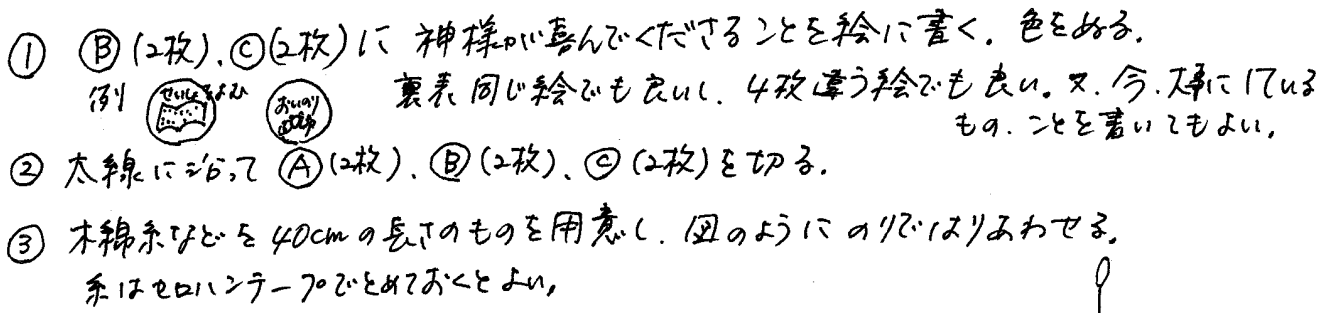 ① Ⓑ(2枚)、Ⓒ(2枚)に 神様が喜んでくださることを絵に書く。色をぬる。
例 せいしょをよむ おいのり 裏表同じ絵でも良いし、4枚違う絵でも良い。又、今、大事にしている
もの、ことを書いてもよい。
② 太線に沿って Ⓐ(2枚)、Ⓑ(2枚)、Ⓒ(2枚)を切る。
③ 木綿糸などを 40cmの長さのものを用意し、図のように のりではりあわせる。
糸はセロハンテープでとめておくとよい。